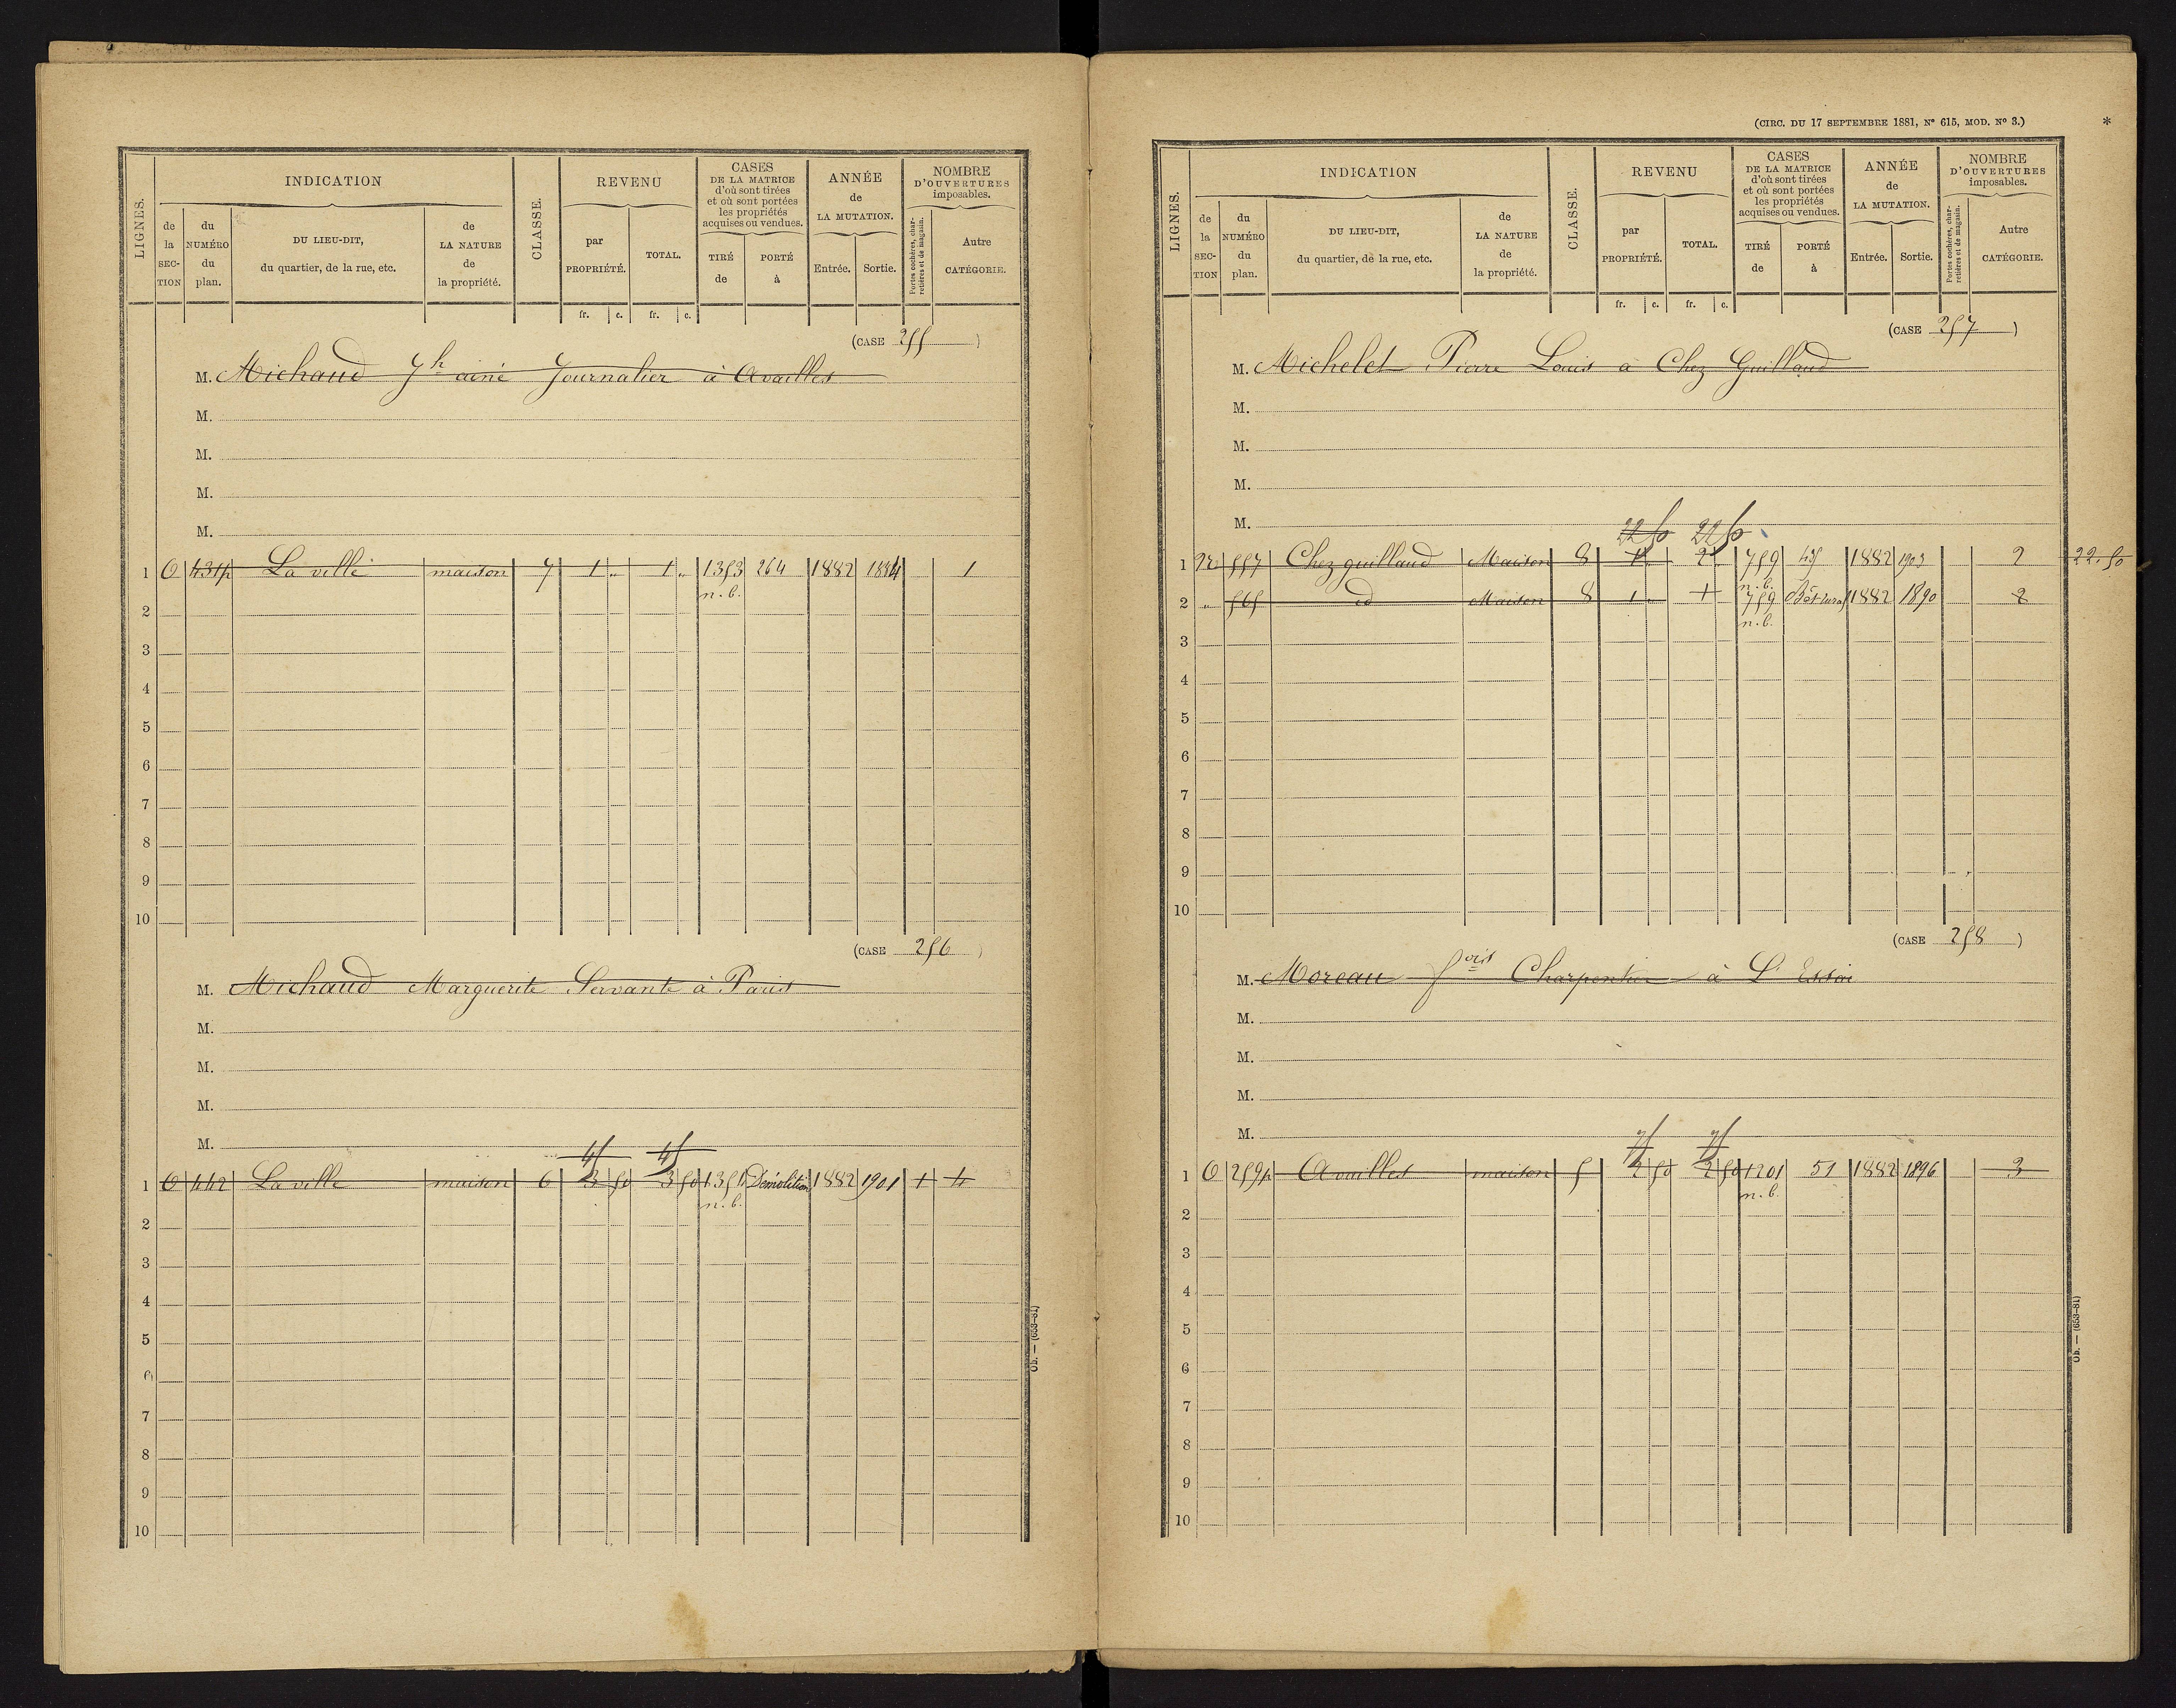 LIGNES.
INDICATION
de la SECTION
du NUMÉRO du plan.
DU LIEU-DIT, du quartier, de la rue, etc.
de LA NATURE de la propriété.
CLASSE.
REVENU
par PROPRIÉTÉ.
TOTAL.
CASES DE LA MATRICE d'où sont tirées et où sont portées les propriétés acquises ou vendues.
TIRÉ de
PORTÉ à
ANNÉE de LA MUTATION.
Entrée. Sortie.
NOMBRE D'OUVERTURES imposables.
Portes cochères, charretières et de magasin.
Autre CATÉGORIE.
fr. c. fr. c.
(CASE 255 )
M. Michaud Jh ainé Journalier à Availles
M.
M.
M.
M.
1 O 431p La ville maison 7 1 " 1 " 1353 264 1882 1884 1
n.b.
2
3
4
5
6
7
8
9
10
(CASE 256 )
M. Michaud Marguerite Servante à Paris
M.
M.
M.
M.
45 45
1 O 442 La ville maison 6 3 50 3 50 1351 Démolition 1882 1901 1 4
n.b.
2
3
4
5
6
7
8
9
10
Ob. — (653-81)
(CIRC. DU 17 SEPTEMBRE 1881, No 615, MOD. No 3.)
*
LIGNES.
INDICATION
de la SECTION
du NUMÉRO du plan.
DU LIEU-DIT, du quartier, de la rue, etc.
de LA NATURE de la propriété.
CLASSE.
REVENU
par PROPRIÉTÉ.
TOTAL.
CASES DE LA MATRICE d'où sont tirées et où sont portées les propriétés acquises ou vendues.
TIRÉ de
PORTÉ à
ANNÉE de LA MUTATION.
Entrée. Sortie.
NOMBRE D'OUVERTURES imposables.
Portes cochères, charretières et de magasin.
Autre CATÉGORIE.
fr. c. fr. c.
(CASE 257 )
M. Michelet Pierre Louis à Chez Guillaud
M.
M.
M.
M.
22 50 22 50
1 557 Chez guillaud Maison 8 1 " 2 " 759 45 1882 1903 2 22.50
n.b.
2 " 565 id Maison 8 1 " 1 759 Bât rural 1882 1890 2
n.b.
3
4
5
6
7
8
9
10
(CASE 258 )
M. Moreau fois Charpentier à L'Essor
M.
M.
M.
M.
75 75
1 O 259p Availles maison 5 2 50 2 50 1201 51 1882 1896 3
n.b.
2
3
4
5
6
7
8
9
10
Ob. — (653-81)